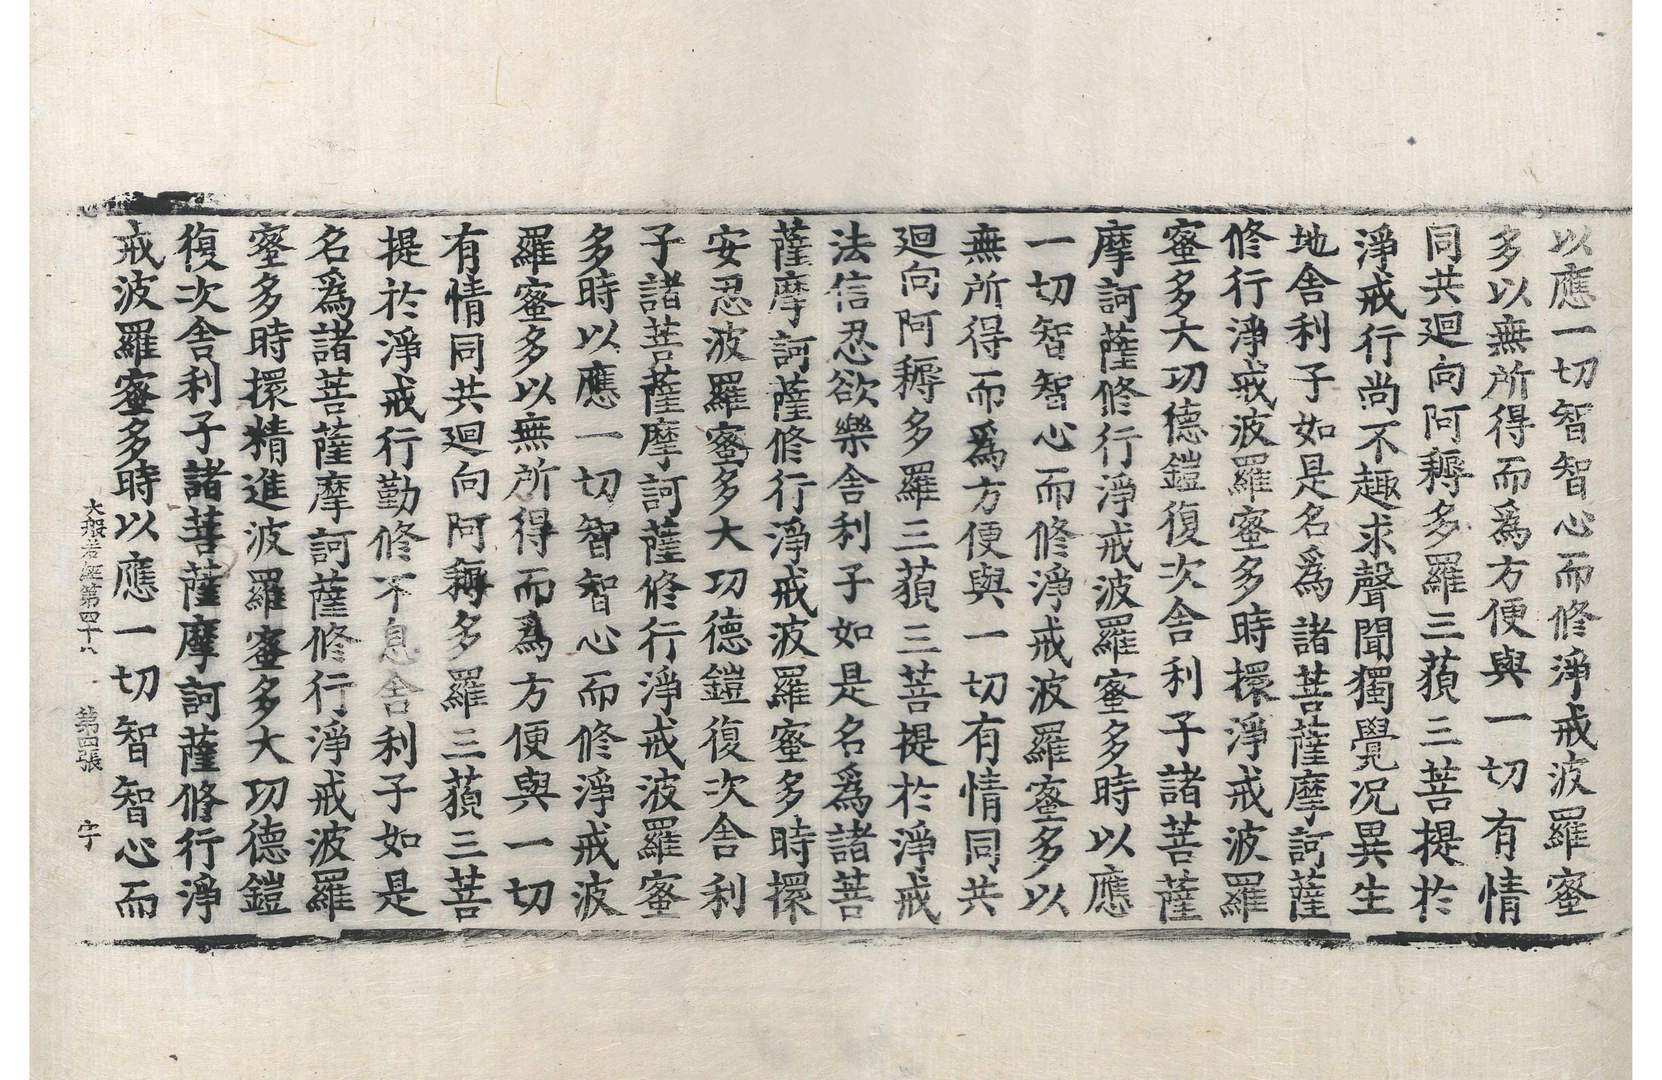 以應一切智智心而修淨戒波羅蜜
多以無所得而爲方便與一切有情
同共廻向阿耨多羅三藐三菩提於
淨戒行尚不趣求聲聞獨覺況異生
地舍利子如是名爲諸菩薩摩訶薩
修行淨戒波羅蜜多時擐淨戒波羅
蜜多大功德鎧復次舍利子諸菩薩
摩訶薩修行淨戒波羅蜜多時以應
一切智智心而修淨戒波羅蜜多以
無所得而爲方便與一切有情同共
廻向阿耨多羅三藐三菩提於淨戒
法信忍欲樂舍利子如是名爲諸菩
薩摩訶薩修行淨戒波羅蜜多時擐
安忍波羅蜜多大功德鎧復次舍利
子諸菩薩摩訶薩修行淨戒波羅蜜
多時以應一切智智心而修淨戒波
羅蜜多以無所得而爲方便與一切
有情同共廻向阿耨多羅三藐三菩
提於淨戒行勤修不息舍利子如是
名爲諸菩薩摩訶薩修行淨戒波羅
蜜多時擐精進波羅蜜多大功德鎧
復次舍利子諸菩薩摩訶薩修行淨
戒波羅蜜多時以應一切智智心而
大般若經第四十八 第四張 宇